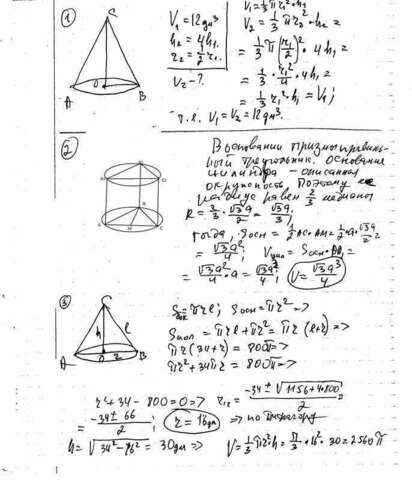 1
C
A
O
B
V₁ = 12 дм³
h₂ = 4h₁.
r₂ = r₁/2.
V₂ - ?
V₁ = 1/3 π r₁² · h₁
V₂ = 1/3 π r₂² · h₂ =
= 1/3 π (r₁/2)² · 4h₁ =
= 1/3 · r₁²/4 · 4h₁ =
= 1/3 r₁² · h₁ = V₁;
т.е. V₁ = V₂ = 12 дм³.
2
В основании призмы правиль-
ный треугольник. основание
цилиндра – описанная
окружность поэтому ее
радиус равен 2/3 медианы
R = 2/3 · √3a/2 = √3a/3;
тогда, Sосн = 1/2 AC · AM = 1/2 a · √3a/2 =
= √3a²/4;
= √3a²/4 · a = √3a³/4;
V = √3a³/4
3
C
h
l
A
r
B
Sбок = πrl; Sосн = πr² ->
Sпол = πrl + πr² = πr (l+r) =>
πr (34+r) = 800π =>
πr² + 34πr = 800π ->
r² + 34 - 800 = 0 => r₁,₂ = (-34 ± √(1156 + 4·800))/2 =
= (-34 ± 66)/2; r = 16 дм =>
h = √(34² - 16²) = 30 дм => V = 1/3 πr² · h = π/3 · 16² · 30 = 2560 π